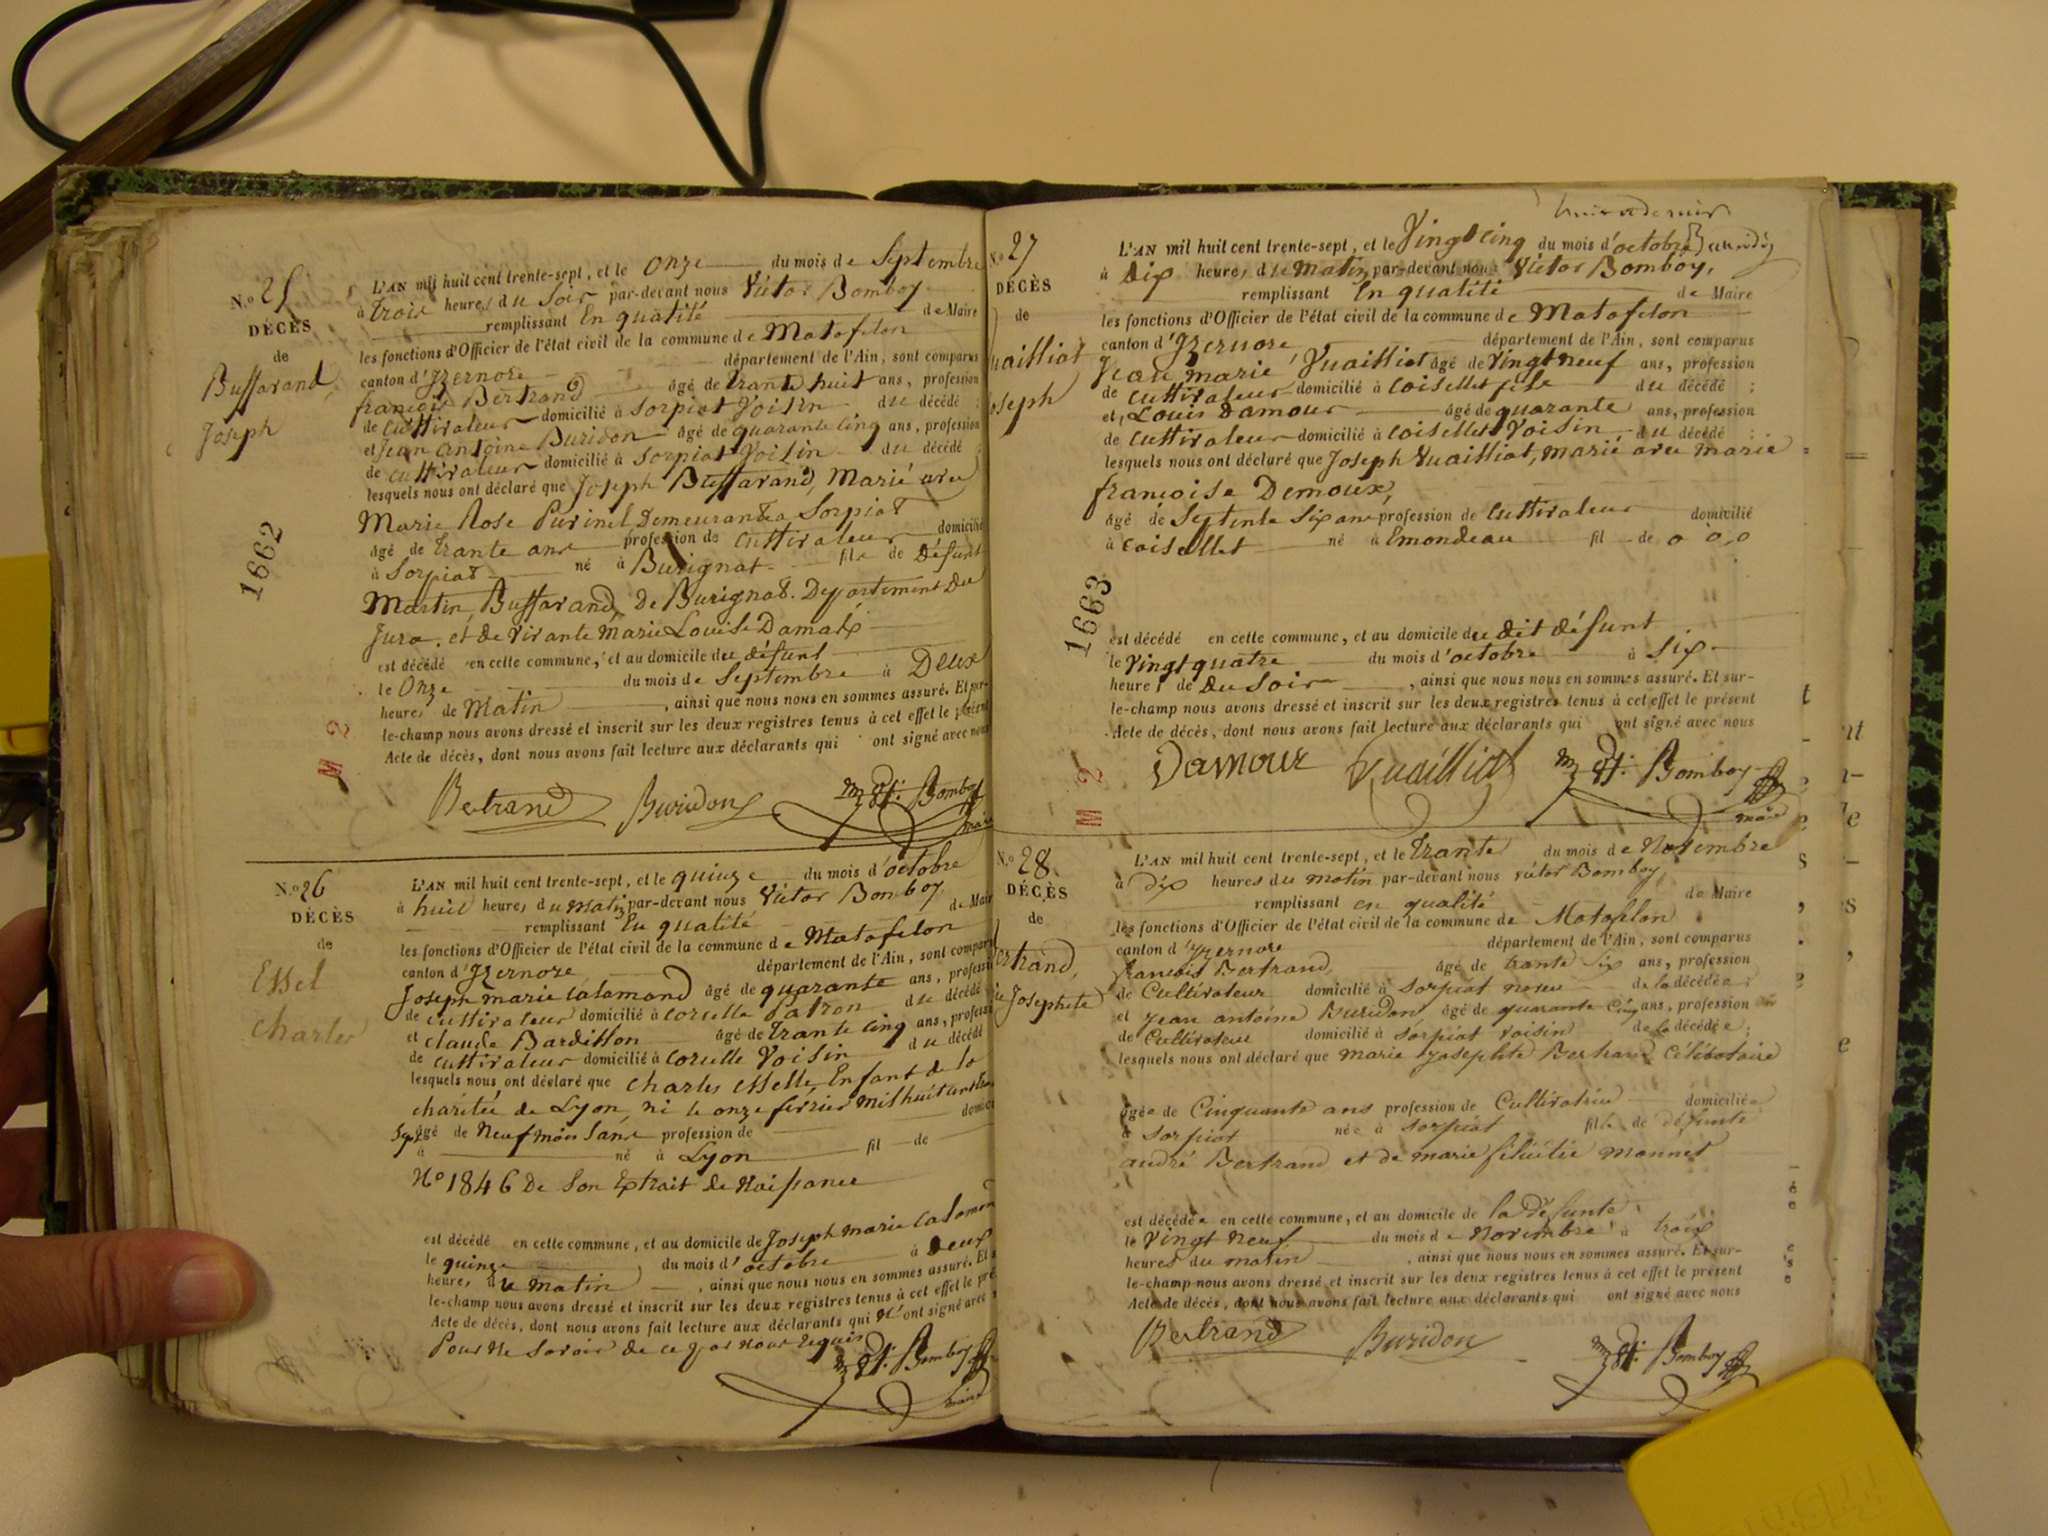 N.º 25
DÉCÈS
de
Buffarand,
Joseph
1662
M 2
L'AN mil huit cent trente-sept, et le onze du mois de Septembre
à trois heures du Soir par-devant nous Victor Bomboy
remplissant En qualité de Maire
les fonctions d'Officier de l'état civil de la commune de Matafelon
canton d'Izernore département de l'Ain, sont comparus
françois Bertrand âgé de trante huit ans, profession
de cultivateur domicilié à Sorpiat Voisin du décédé ;
et Jean Antoine Buridon âgé de quarante cinq ans, profession
de cultivateur domicilié à Sorpiat Voisin du décédé ;
lesquels nous ont déclaré que Joseph Buffarand, Marié avec
Marie Rose Purinel, Demeurant a Sorpiat
âgé de trante ans profession de cultivateur domicilié
à Sorpiat né à Burignat fils de Défunt
Martin, Buffarand, de Burignat. Departement Du
Jura. et de vivante Marie Louise Damaix
est décédé en cette commune, et au domicile du défunt
le Onze du mois de Septembre à Deux
heures de Matin, ainsi que nous nous en sommes assuré. Et sur-
le-champ nous avons dressé et inscrit sur les deux registres tenus à cet effet le présent
Acte de décès, dont nous avons fait lecture aux déclarants qui ont signé avec nous
Bertrand Buridon Bomboy
maire
N.º 26
DÉCÈS
de
Essel
Charles
L'AN mil huit cent trente-sept, et le quinze du mois d'octobre
à huit heures du Matin par-devant nous Victor Bomboy
remplissant En qualité de Maire
les fonctions d'Officier de l'état civil de la commune de Matafelon
canton d'Izernore département de l'Ain, sont comparus
Joseph marie Calamand âgé de quarante ans, profession
de cultivateur domicilié à Corcelle Patron du décédé
et claude Bardillon âgé de trante cinq ans, profession
de cultivateur domicilié à Corcelle Voisin du décédé
lesquels nous ont déclaré que Charles Esselle, Enfant de la
charitée de Lyon, né le onze fevrier mil huit cent
âgé de Neuf mois Sans profession de domicilié
à né à Lyon fil de
Nº 1846 De Son Extrait de Naissance
est décédé en cette commune, et au domicile de Joseph marie Calamand
le quinze du mois d'octobre à Deux
heures du Matin, ainsi que nous nous en sommes assuré. Et
le-champ nous avons dressé et inscrit sur les deux registres tenus à cet effet le pré
Acte de décès, dont nous avons fait lecture aux déclarants qui N'ont signé avec
Pour Ne Savoir de ce par nous Requis
Bomboy
maire
N.º 27
DÉCÈS
de
Vuailliat
Joseph
1663
M 2
L'AN mil huit cent trente-sept, et le Vingt cinq du mois d'octobre
à Dix heures du Matin, par-devant nous Victor Bomboy,
remplissant En qualité de Maire
les fonctions d'Officier de l'état civil de la commune de Matafelon
canton d'Izernore département de l'Ain, sont comparus
Jean marie Vuailliat âgé de Vingt neuf ans, profession
de cultivateur domicilié à Coisellet fils du décédé ;
et, Louis Damour âgé de quarante ans, profession
de cultivateur domicilié à Coisellet Voisin du décédé ;
lesquels nous ont déclaré que Joseph Vuailliat, marié avec marie
françoise Demoux,
âgé de Septente Six ans profession de cultivateur domicilié
à Coisellet né à Emondeau fil de o o o
est décédé en cette commune, et au domicile du dit défunt
le Vingt quatre du mois d'octobre à Six
heures de Du Soir, ainsi que nous nous en sommes assuré. Et sur-
le-champ nous avons dressé et inscrit sur les deux registres tenus à cet effet le présent
Acte de décès, dont nous avons fait lecture aux déclarants qui ont signé avec nous
Damour Vuailliat Bomboy
maire
N.º 28
DÉCÈS
de
Bertrand,
Josephete
L'AN mil huit cent trente-sept, et le trante du mois de Novembre
à dix heures du matin par-devant nous victor Bomboy
remplissant en qualité de Maire
les fonctions d'Officier de l'état civil de la commune de Matafelon
canton d'Izernore département de l'Ain, sont comparus
françois Bertrand, âgé de trante six ans, profession
de Cultivateur domicilié à Sorpiat neveu de la décédée ;
et jean antoine Buridon âgé de quarante Cinq ans, profession
de Cultivateur domicilié à Sorpiat voisin de la décédée ;
lesquels nous ont déclaré que marie josephte Bertrand Célibataire
âgée de Cinquante ans profession de Cultivatrice domiciliée
à Sorpiat née à Sorpiat fille de défunte
andré Bertrand et de marie félicitée monnet
est décédée en cette commune, et au domicile de la défunte
le Vingt Neuf du mois de Novembre à trois
heures du matin, ainsi que nous nous en sommes assuré. Et sur-
le-champ nous avons dressé et inscrit sur les deux registres tenus à cet effet le présent
Acte de décès, dont nous avons fait lecture aux déclarants qui ont signé avec nous
Bertrand Buridon Bomboy